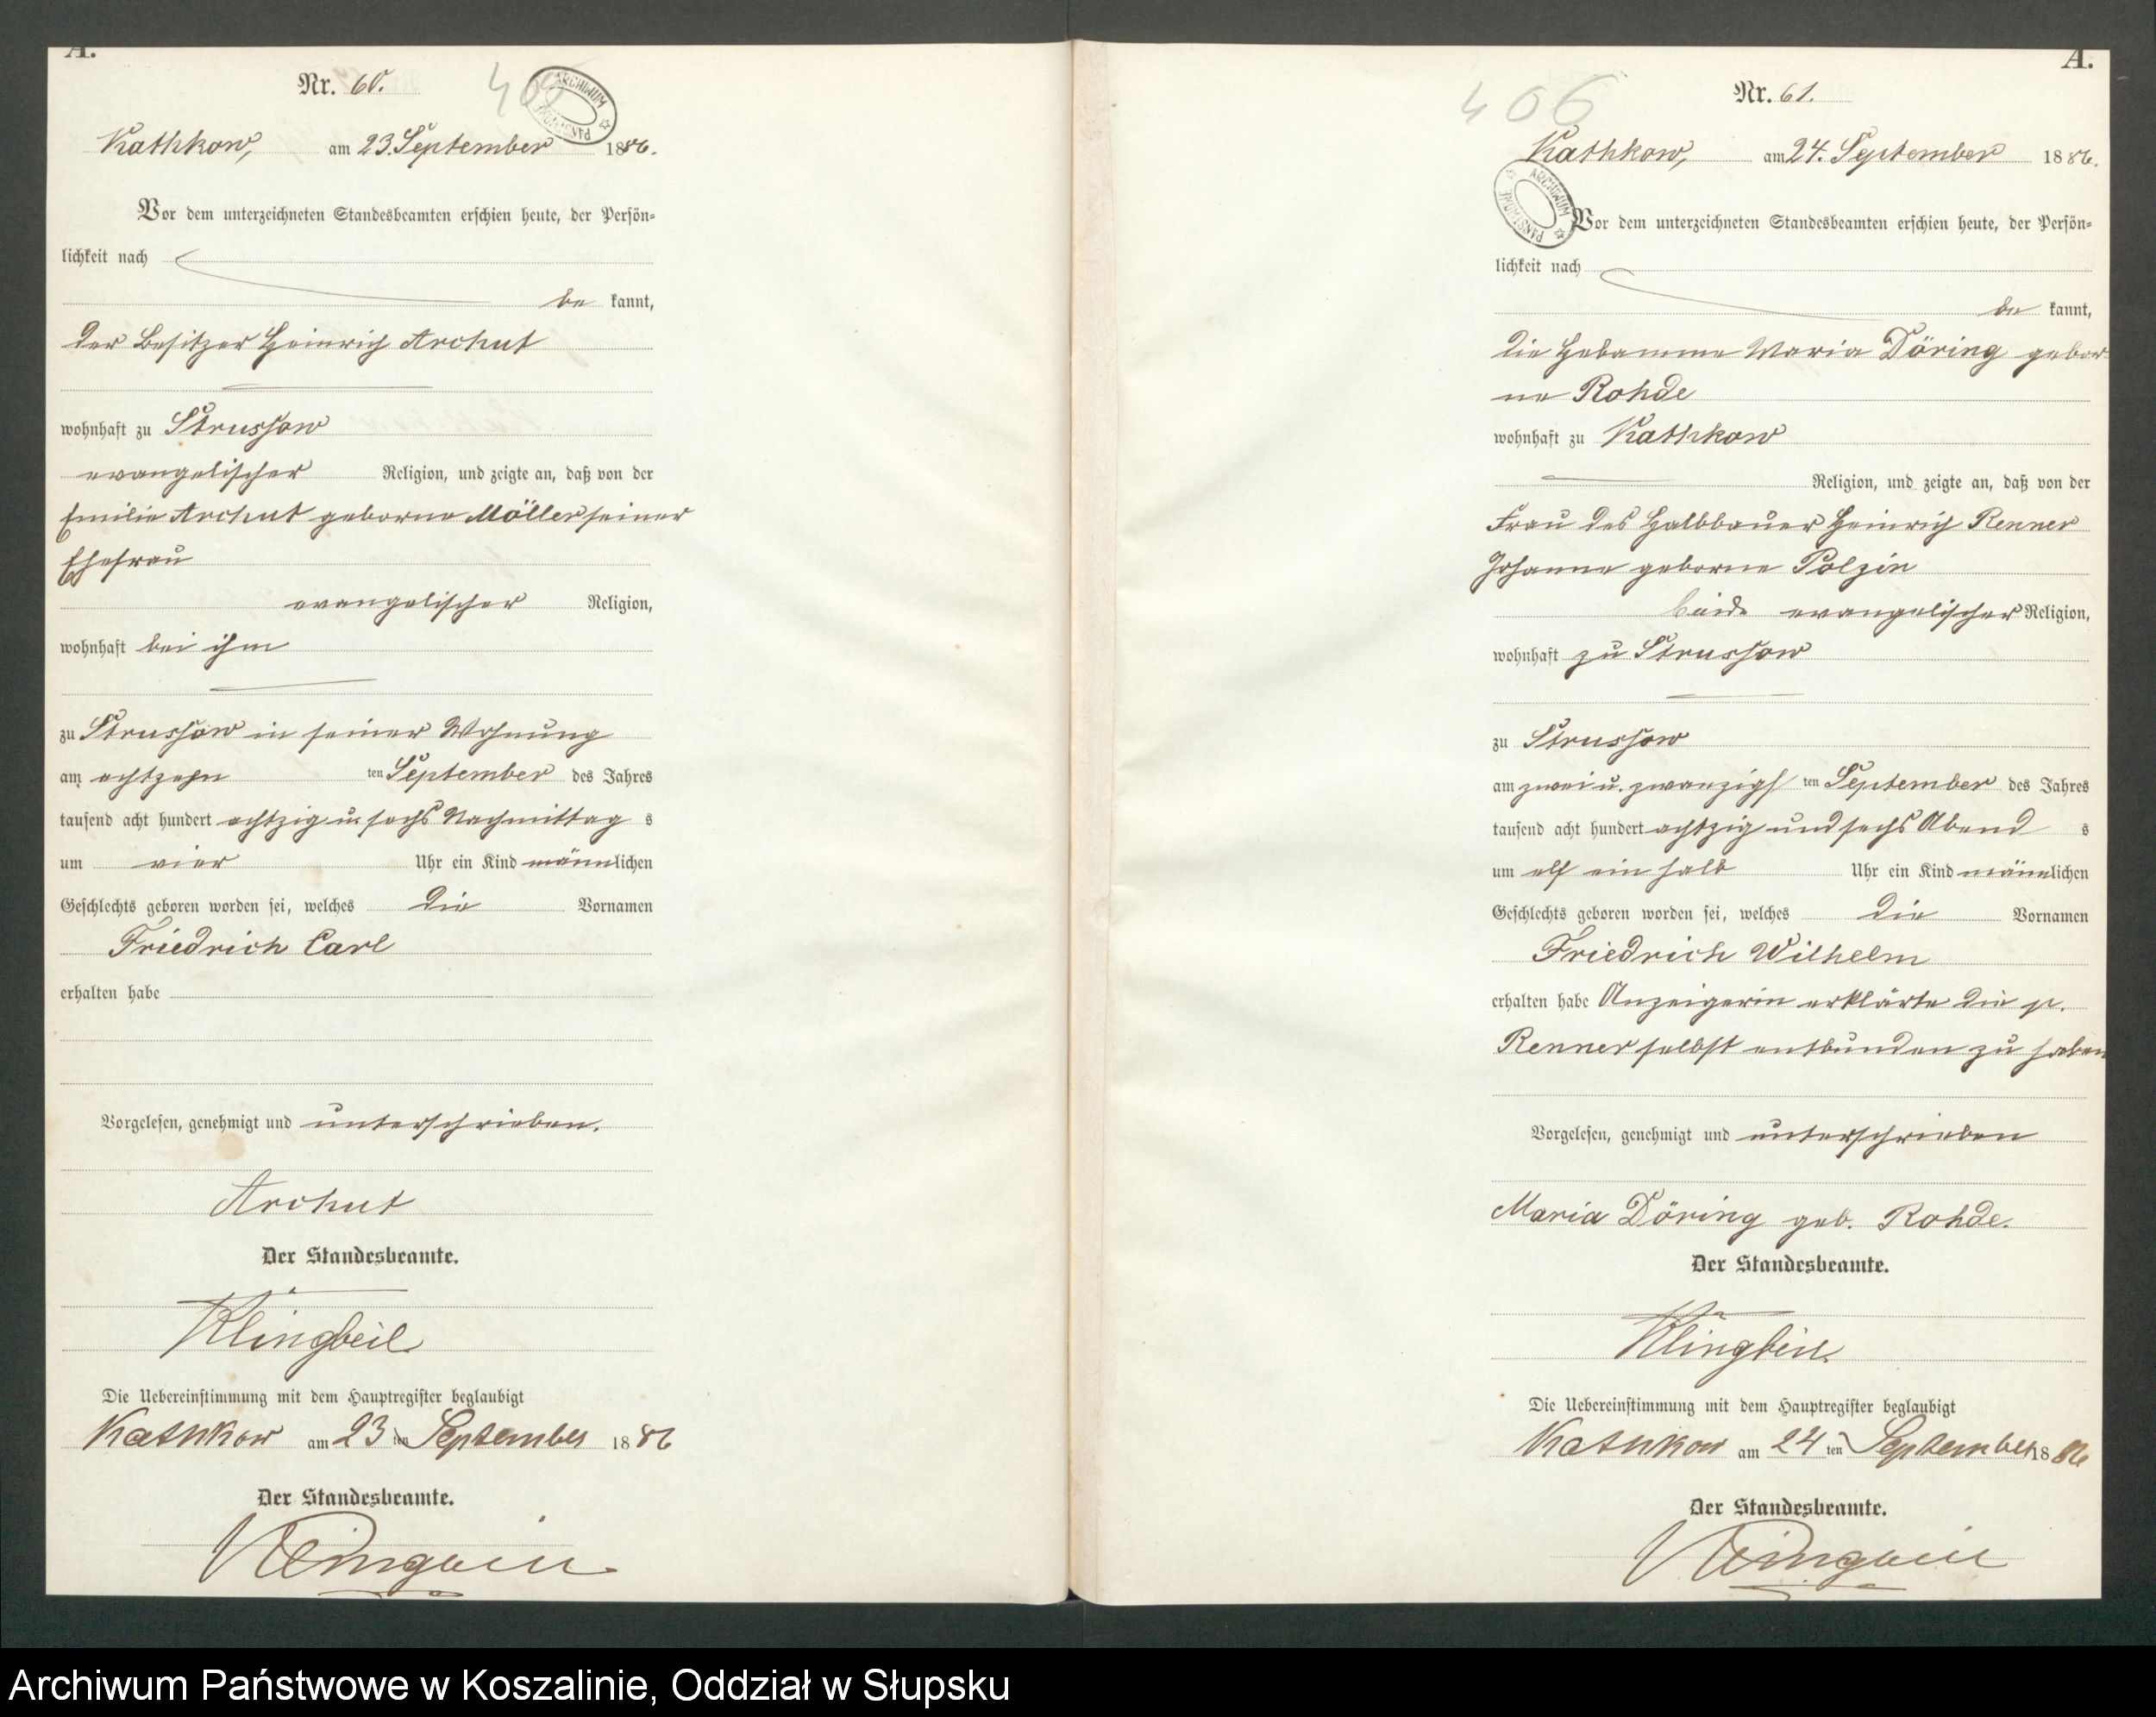 A.
Nr. 60.
405
ARCHIWUM PAŃSTWOWE
Kathkow, am 23. September 1886.
Vor dem unterzeichneten Standesbeamten erschien heute, der Persön=
lichkeit nach
be kannt,
der Besitzer Heinrich Archut
wohnhaft zu Strussow
evangelischer Religion, und zeigte an, daß von der
Emilie Archut geborne Möller seiner
Ehefrau
evangelischer Religion,
wohnhaft bei ihm
zu Strussow in seiner Wohnung
am achtzehn ten September des Jahres
tausend acht hundert achtzig u. sechs Nachmittag s
um vier Uhr ein Kind männlichen
Geschlechts geboren worden sei, welches die Vornamen
Friedrich Carl
erhalten habe
Vorgelesen, genehmigt und unterschrieben.
Archut
Der Standesbeamte.
Klingbeil
Die Uebereinstimmung mit dem Hauptregister beglaubigt
Kathkow am 23 ten September 1886
Der Standesbeamte.
Klingbeil
A.
Nr. 61.
406
Kathkow, am 24. September 1886.
ARCHIWUM PAŃSTWOWE
Vor dem unterzeichneten Standesbeamten erschien heute, der Persön=
lichkeit nach
be kannt,
die Hebamme Maria Döring gebor
ne Rohde
wohnhaft zu Kathkow
Religion, und zeigte an, daß von der
Frau des Halbbauer Heinrich Renner
Johanne geborne Polzin
beide evangelischer Religion,
wohnhaft zu Strussow
zu Strussow
am zwei u. zwanzigs ten September des Jahres
tausend acht hundert achtzig und sechs Abend s
um elf ein halb Uhr ein Kind männlichen
Geschlechts geboren worden sei, welches die Vornamen
Friedrich Wilhelm
erhalten habe Anzeigerin erklärte die p.
Renner selbst entbunden zu haben
Vorgelesen, genehmigt und unterschrieben
Maria Döring geb. Rohde.
Der Standesbeamte.
Klingbeil
Die Uebereinstimmung mit dem Hauptregister beglaubigt
Kathkow am 24 ten September 1886
Der Standesbeamte.
Klingbeil
Archiwum Państwowe w Koszalinie, Oddział w Słupsku